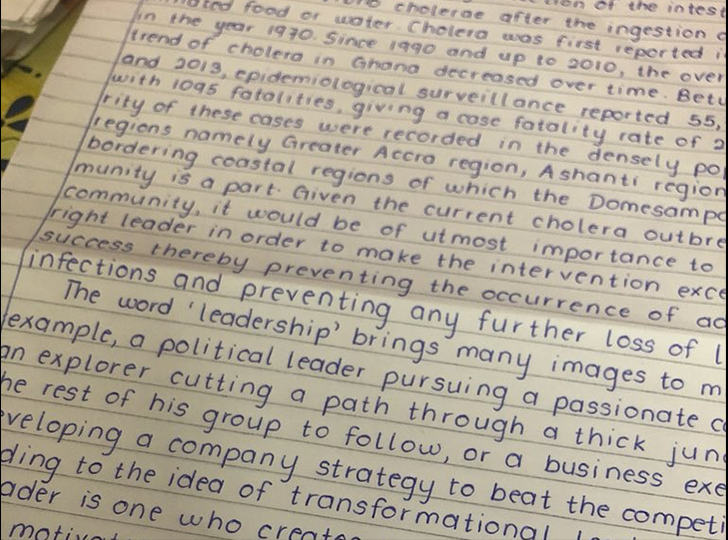 tion of the intest
nated food or water. Cholera cholerae after the ingestion
in the year 1970. Since 1990 was first reported
trend of cholera in Ghana and up to 2010, the over
and 2013, epidemiological decreased over time. Bet
with 1095 fatalities, surveillance reported 55,
rity of these cases giving a case fatality rate of 2
regions namely were recorded in the densely po
bordering coastal Greater Accra region, Ashanti region
munity is a part. regions of which the Domesamp
community, it Given the current cholera outbre
right leader in would be of utmost importance to
success thereby order to make the intervention exce
infections and preventing the occurrence of ad
The word preventing any further loss of l
example, a 'leadership' brings many images to m
an explorer political leader pursuing a passionate c
he rest of cutting a path through a thick jun
veloping his group to follow, or a business exe
ding to a company strategy to beat the competi
ader is the idea of transformational
motivat one who creates